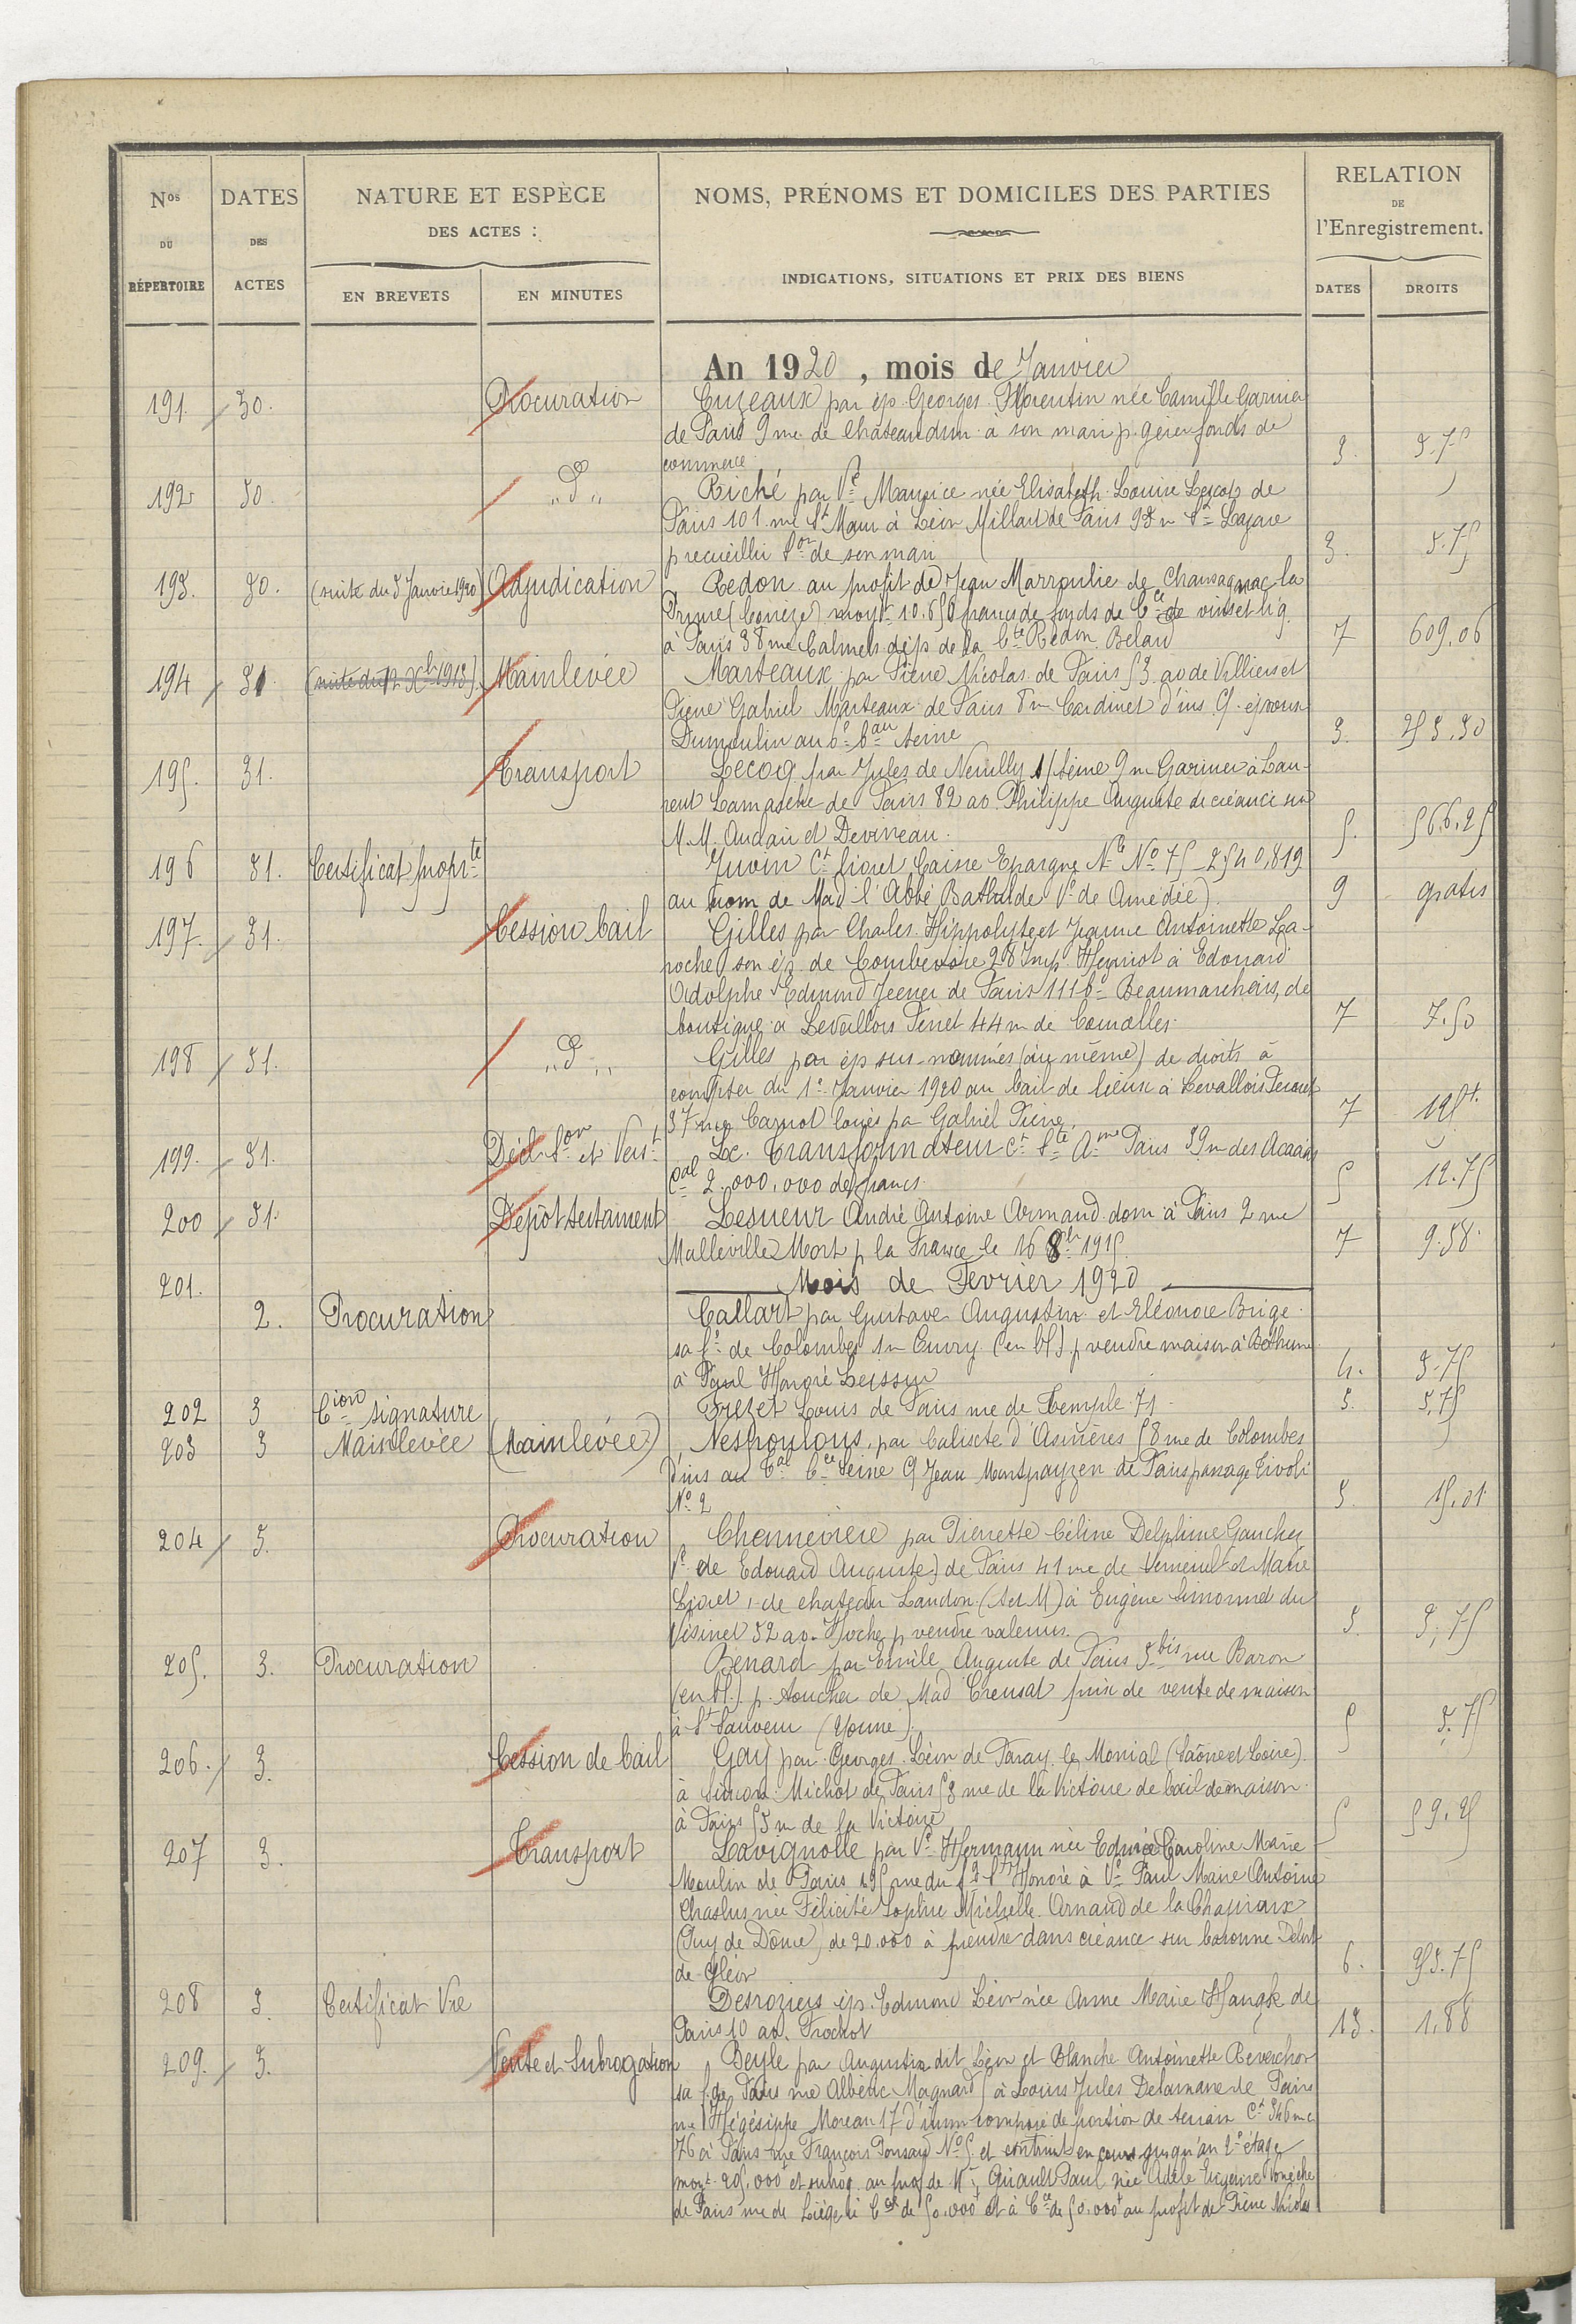 Nos DU RÉPERTOIRE
DATES DES ACTES
NATURE ET ESPÈCE DES ACTES :
EN BREVETS
EN MINUTES
NOMS, PRÉNOMS ET DOMICILES DES PARTIES
INDICATIONS, SITUATIONS ET PRIX DES BIENS
RELATION DE l'Enregistrement.
DATES
DROITS
An 1920, mois de Janvier
191. 30. Procuration Cuzeaux par ép. Georges Florentin née Camille Garnier
de Paris 9 rue de Chateaudun à son mari p. gérer fonds de
commerce. 3. 3.75
192 30. " d° " Riché par Ve Maurice née Elisabeth Louise Lescot de
Paris 101 rue St Maur à Léon Millard de Paris 93 r St Lazare
p recueillir Son de son mari 3. 3.75
193. 30. (suite du 5 Janvier 1920) Adjudication Redon au profit de Jean Marroulie de Chansagnac la
Prune (Corrèze) moyt 10.650 francs de fonds de Cce de vins et liq.
à Paris 38 rue Calmels dép de la Cte Redon Belard 7 609,06
194 31. Mainlevée Marteaux par Pierre Nicolas de Paris 53 av de Villiers et
Pierre Gabriel Marteaux de Paris 8 r Cardinet d'ins C. époux
Dumoulin au 6e beau Seine 3. 253,30
195. 31. Transport Lecoq par Jules de Neuilly s/Seine 9 r Garnier à Lau-
rent Lamasche de Paris 82 av. Philippe Auguste de créance sur
M.M. Audair et Devineau. 5. 566,25
196 31. Certificat propté Juvin Ct livret Caisse Epargne Nle No 75_2540,819
au nom de Mad l'Abbé Bathilde Ve de Amédée) 9 gratis
197. 31. Cession bail Gilles par Charles Hippolyte et Jeanne Antoinette La-
roche son ép. de Courbevoie 28 Imp. à Edouard
Adolphe Edmond Jeener de Paris 111 bd Beaumarchais, de
boutique à Levallois Perret 44 r de Cormeilles. 7 7.50
198 31. " d° " Gilles par ép sus-nommés (au même) de droits à
compter du 1er Janvier 1920 au bail de lieux à Levallois Perret
37 rue Carnot loués pa Gabriel Pierre. 7
199. 31. Décl. Son et Verst Le Transformateur Ct Sté Ame Paris 39 r des Acacias
Cal 2.000,000 de francs. 5 12.75
200 31. Dépôt testament Lesueur André Antoine Armand dom à Paris 2 rue
Malleville Mort p la France le 16 8bre 1915. 7 9.38.
201. Mois de Fevrier 1920
2. Procuration Callart par Gustave Augustin et Eléonore Brige
sa fe de Colombes 1 r Cuvry (en bl) p vendre maison à Bethune
à Paul Honoré Leissin 4. 3.75
202 3 Cion signature Trezet Louis de Paris rue de Temple 71. 5. 3,75
203 3 Mainlevée (Mainlevée) Nespoulous, par Calixte d'Asnières 58 rue de Colombes
d'ins au Cal Cce Seine C Jean Montpayzen de Paris passage Tivoli
No 2 5. 15,01
204 3. Procuration Chennevière par Pierrette Céline Delphine Gaucher
Ve de Edouard Auguste) de Paris 41 rue de Verneuil et Marie
de chateau Landon (S et M) à Eugène Simonnet du
Vésinet 52 av. Hoche p vendre valeurs. 5. 3,75
205. 3. Procuration Benard par Emile Auguste de Paris 5 bis rue Baron
(en bl.) p. toucher de Mad Creusat prix de vente de maison
à St Sauveur (Yonne). 5 3.75
206. 3. Cession de bail Gay par Georges Léon de Paray le Monial (Saône et Loire)
à Simon Michot de Paris 53 rue de la Victoire de bail de maison
à Paris 55 r de la Victoire 5 59,25
207 3. Transport Lavignolle par Ve Hermann née Edmée Caroline Marie
Moulin de Paris 195 rue du fg St Honoré à Ve Paul Marie Antoine
Chaslus née Félicité Sophie Michelle Arnaud de la
(Puy de Dôme) de 20.000 à prendre dans créance sur baronne Delort
de Gléon 6. 253.75
208 3. Certificat Vie Desroziers ép. Edmond Léon née Anne Marie Haugk de
Paris 10 av. Frochot 13. 1,88
209. 3. Vente et Subrogation Beyle par Augustin dit Léon et Blanche Antoinette Reverchon
sa f. de Paris rue Albéric Magnard 5 à Louis Jules Delamare de Paris
rue Hégésippe Moreau 17 d'imm composé de portion de terrain Ct 346 mc
76 à Paris rue François Ponsard No 5 et constrins en cours jusqu'au 2e étage
moyt 205,000f et subrog. au prof de Me Girault Paul née Adèle Eugénie
de Paris rue de Liège à Cce de 50.000f et à Cce de 50,000f au profit de Pierre Nicolas